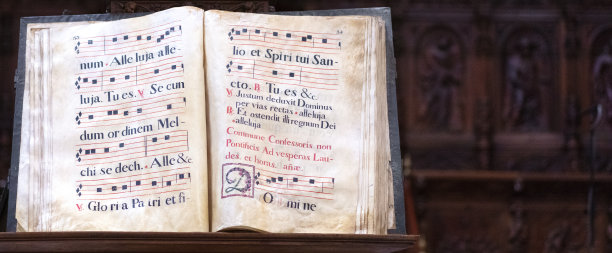 num. Alleluja alle
luja. Tu es. ℣ Secun
dum ordinem Mel-
chisedech. Alle &c
℣ Gloria Patri et fi-
lio et Spiritui San-
cto. ℟ Tu es &c.
℣ Justum deduxit Dominus
per vias rectas alleluja
℟ Et ostendit illi regnum Dei
alleluja
Commune Confessoris non
Pontificis Ad vesperas Lau-
des. et horas. añae
Domine